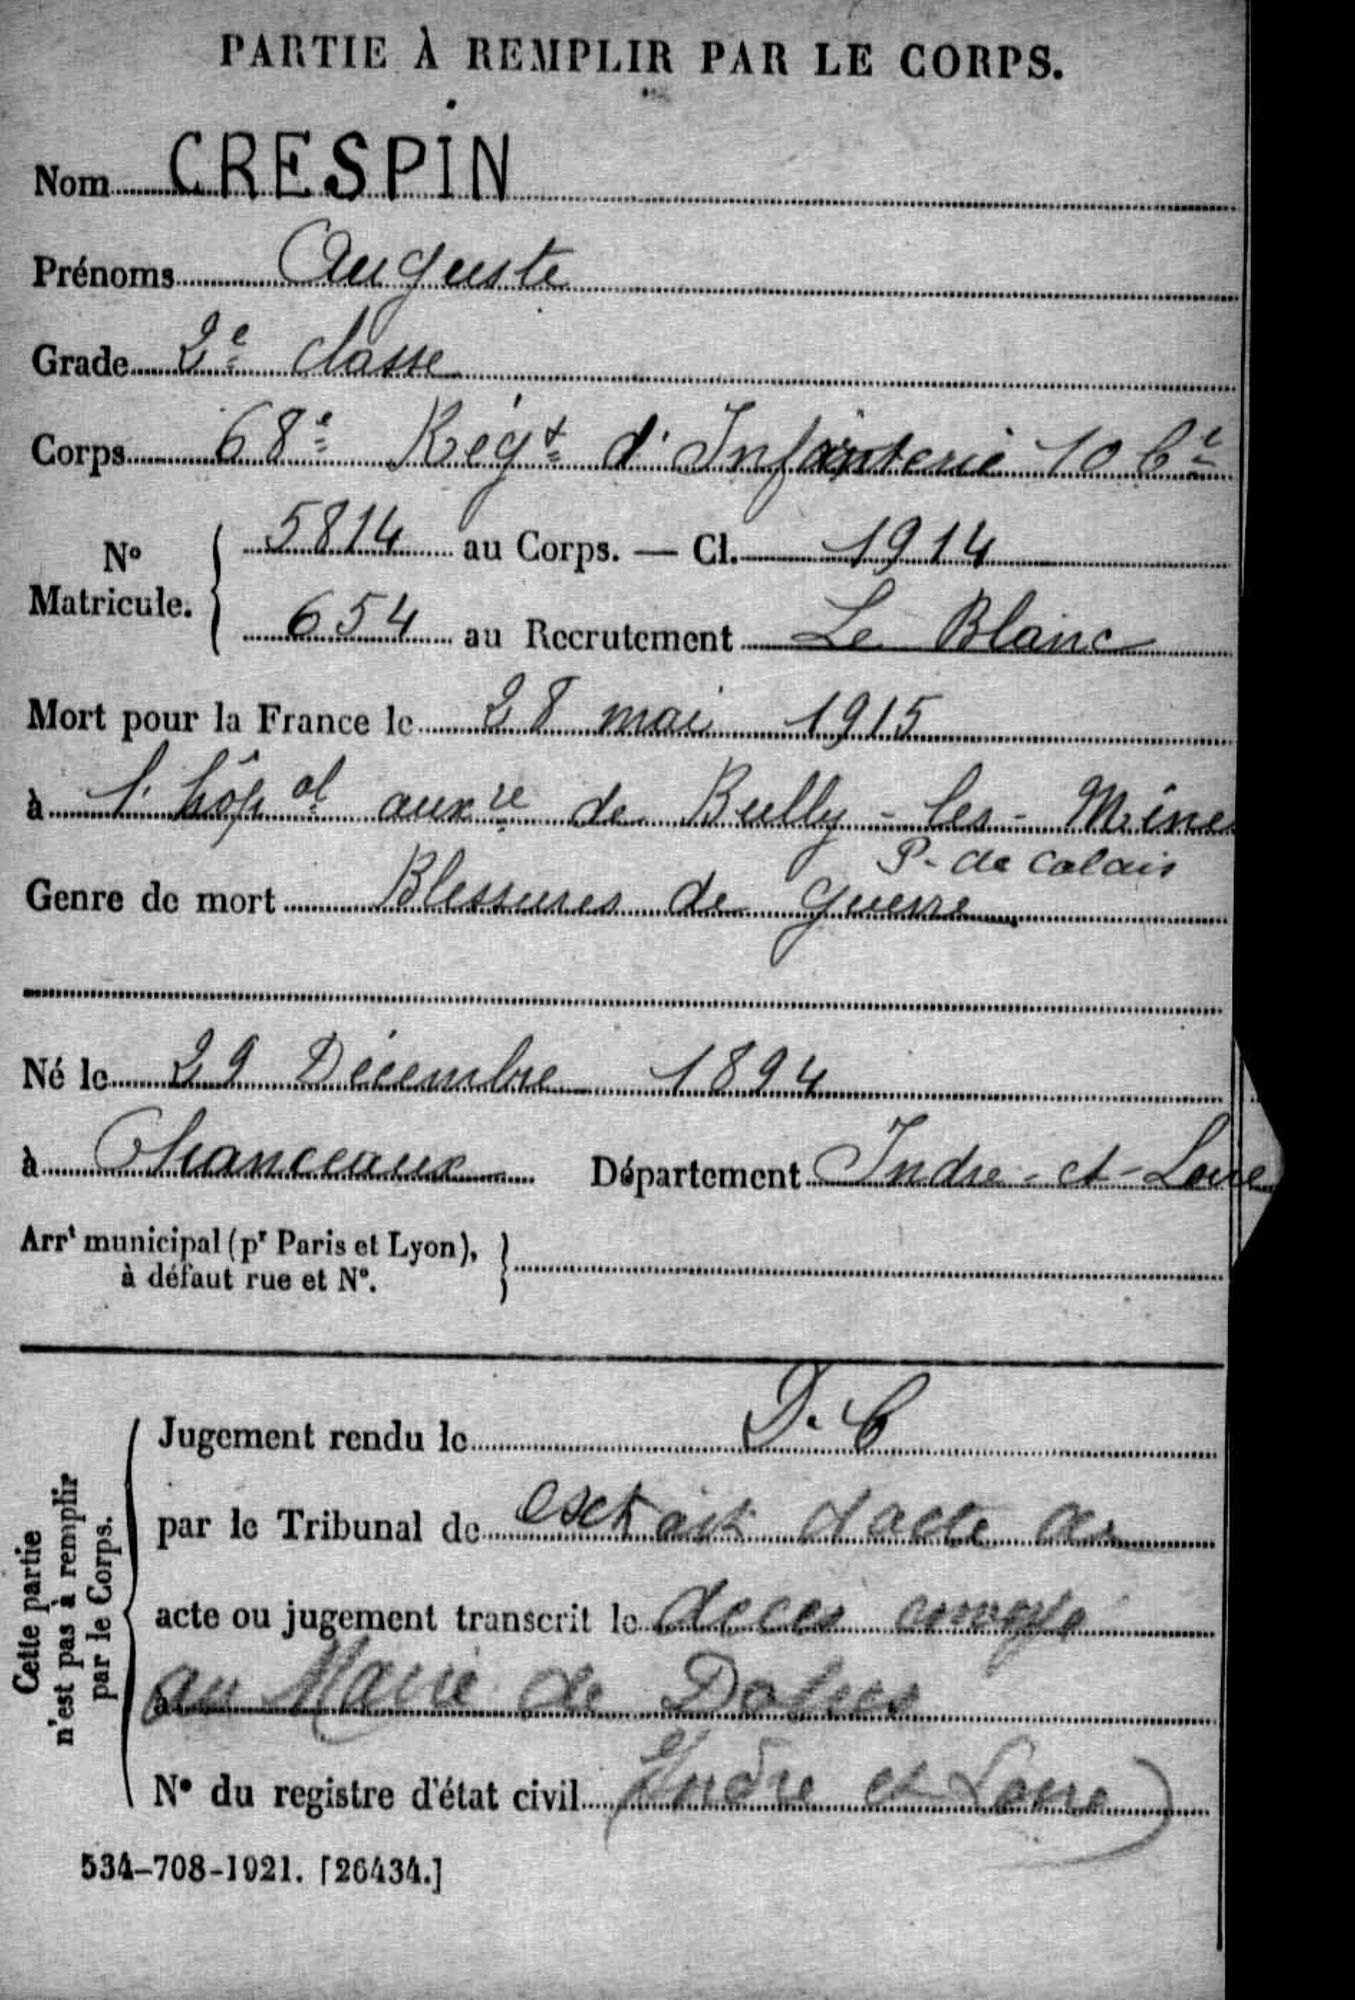 PARTIE À REMPLIR PAR LE CORPS.
Nom CRESPIN
Prénoms Auguste
Grade 2e classe
Corps 68e Régt d'Infanterie 10 Cie
No Matricule. { 5814 au Corps. — Cl. 1914
654 au Recrutement Le Blanc
Mort pour la France le 28 mai 1915
à l'hôpal auxre de Bully-les-Mines
P-de Calais
Genre de mort Blessures de guerre
Né le 29 Décembre 1894
à Chanceaux Département Indre-et-Loire
Arrt municipal (pr Paris et Lyon),
à défaut rue et No.
Cette partie
n'est pas à remplir
par le Corps.
Jugement rendu le D. C
par le Tribunal de extrait d'acte de
acte ou jugement transcrit le deces envoye
à au Maire de Dolus
No du registre d'état civil (Indre et Loire)
534-708-1921. [26434.]